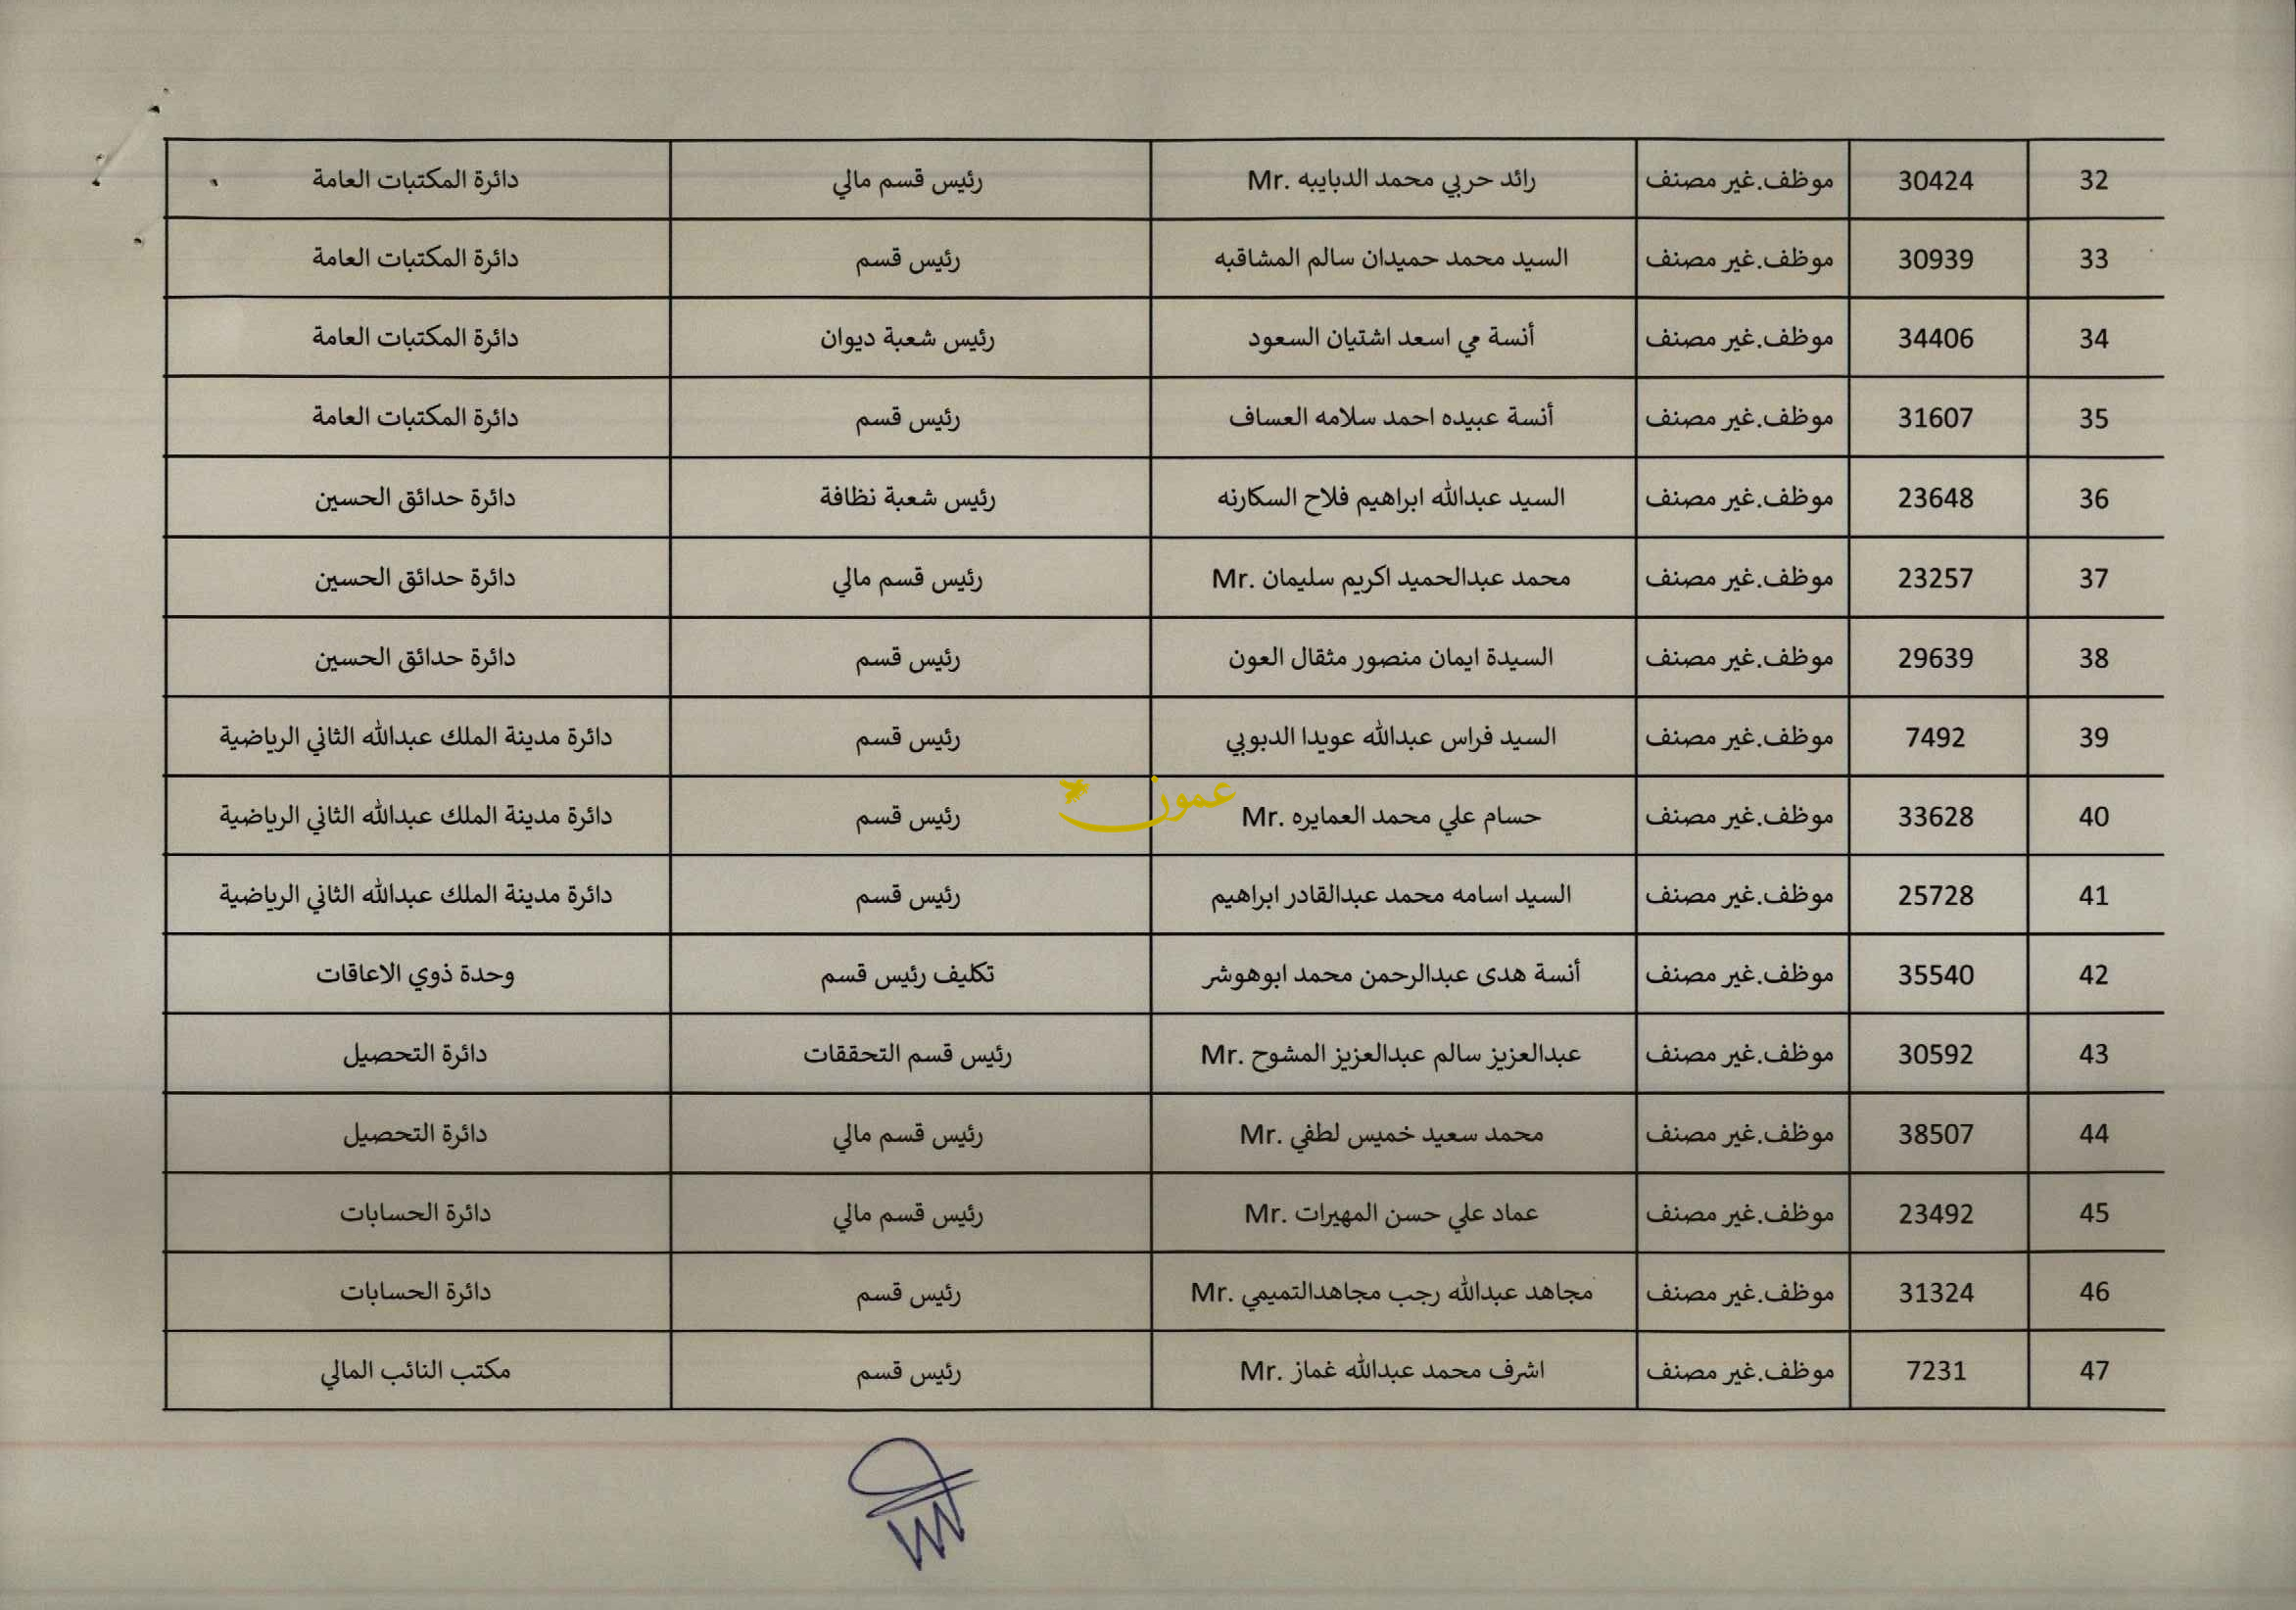 32 30424 موظف.غير مصنف رائد حربي محمد الدبايبه Mr. رئيس قسم مالي دائرة المكتبات العامة
33 30939 موظف.غير مصنف السيد محمد حميدان سالم المشاقبه رئيس قسم دائرة المكتبات العامة
34 34406 موظف.غير مصنف أنسة مي اسعد اشتيان السعود رئيس شعبة ديوان دائرة المكتبات العامة
35 31607 موظف.غير مصنف أنسة عبيده احمد سلامه العساف رئيس قسم دائرة المكتبات العامة
36 23648 موظف.غير مصنف السيد عبدالله ابراهيم فلاح السكارنه رئيس شعبة نظافة دائرة حدائق الحسين
37 23257 موظف.غير مصنف محمد عبدالحميد اكريم سليمان Mr. رئيس قسم مالي دائرة حدائق الحسين
38 29639 موظف.غير مصنف السيدة ايمان منصور مثقال العون رئيس قسم دائرة حدائق الحسين
39 7492 موظف.غير مصنف السيد فراس عبدالله عويدا الدبوبي رئيس قسم دائرة مدينة الملك عبدالله الثاني الرياضية
40 33628 موظف.غير مصنف حسام علي محمد العمايره Mr. رئيس قسم دائرة مدينة الملك عبدالله الثاني الرياضية
عمون
41 25728 موظف.غير مصنف السيد اسامه محمد عبدالقادر ابراهيم رئيس قسم دائرة مدينة الملك عبدالله الثاني الرياضية
42 35540 موظف.غير مصنف أنسة هدى عبدالرحمن محمد ابوهوشر تكليف رئيس قسم وحدة ذوي الاعاقات
43 30592 موظف.غير مصنف عبدالعزيز سالم عبدالعزيز المشوح Mr. رئيس قسم التحققات دائرة التحصيل
44 38507 موظف.غير مصنف محمد سعيد خميس لطفي Mr. رئيس قسم مالي دائرة التحصيل
45 23492 موظف.غير مصنف عماد علي حسن المهيرات Mr. رئيس قسم مالي دائرة الحسابات
46 31324 موظف.غير مصنف مجاهد عبدالله رجب مجاهدالتميمي Mr. رئيس قسم دائرة الحسابات
47 7231 موظف.غير مصنف اشرف محمد عبدالله غماز Mr. رئيس قسم مكتب النائب المالي